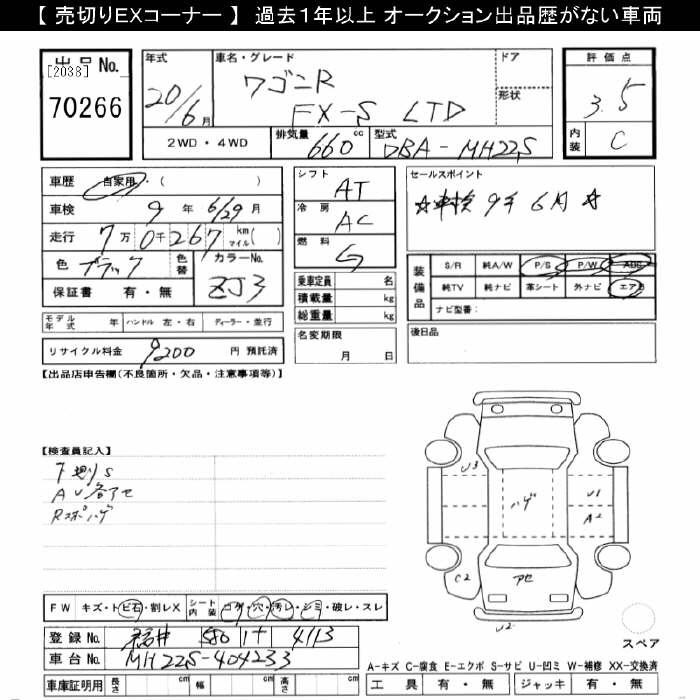 【 売切りEXコーナー 】 過去１年以上 オークション出品歴がない車両
出品No. [2038] 70266
年式 20/6月
車名・グレード ワゴンR FX-S LTD
ドア
形状
2WD・4WD
排気量 660 cc
型式 DBA-MH22S
評価点 3.5
内装 C
車歴 自家用・( )
車検 9年 6/29月
走行 7万0千267 km マイル( )
色 ブラック 色替 カラーNo. ZJ3
保証書 有・無
シフト AT
冷房 AC
燃料 G
乗車定員 名
積載量 kg
総重量 kg
セールスポイント
☆車検 9年6月☆
装備品 S/R 純A/W P/S P/W ABS
純TV 純ナビ 革シート 外ナビ エアB
ナビ型番：
モデル年式 年 ハンドル 左・右 ディーラー・並行
リサイクル料金 9200 円 預託済
名変期限 月 日
後日品
【出品店申告欄(不良箇所・欠品・注意事項等)】
【検査員記入】
下廻りS
AU各アセ
Rスポハゲ
U3
ハゲ
U1
A2
C2
アセ
U2
スペア
FW キズ・トビ石・割レX シート内装 コゲ・穴・汚レ・シミ・破レ・スレ
登録No. 福井 580 1+ 4113
車台No. MH22S-404233
車庫証明用 長さ cm 幅 cm 高さ cm
A-キズ C-腐食 E-エクボ S-サビ U-凹ミ W-補修 XX-交換済
工具 有・無 ジャッキ 有・無